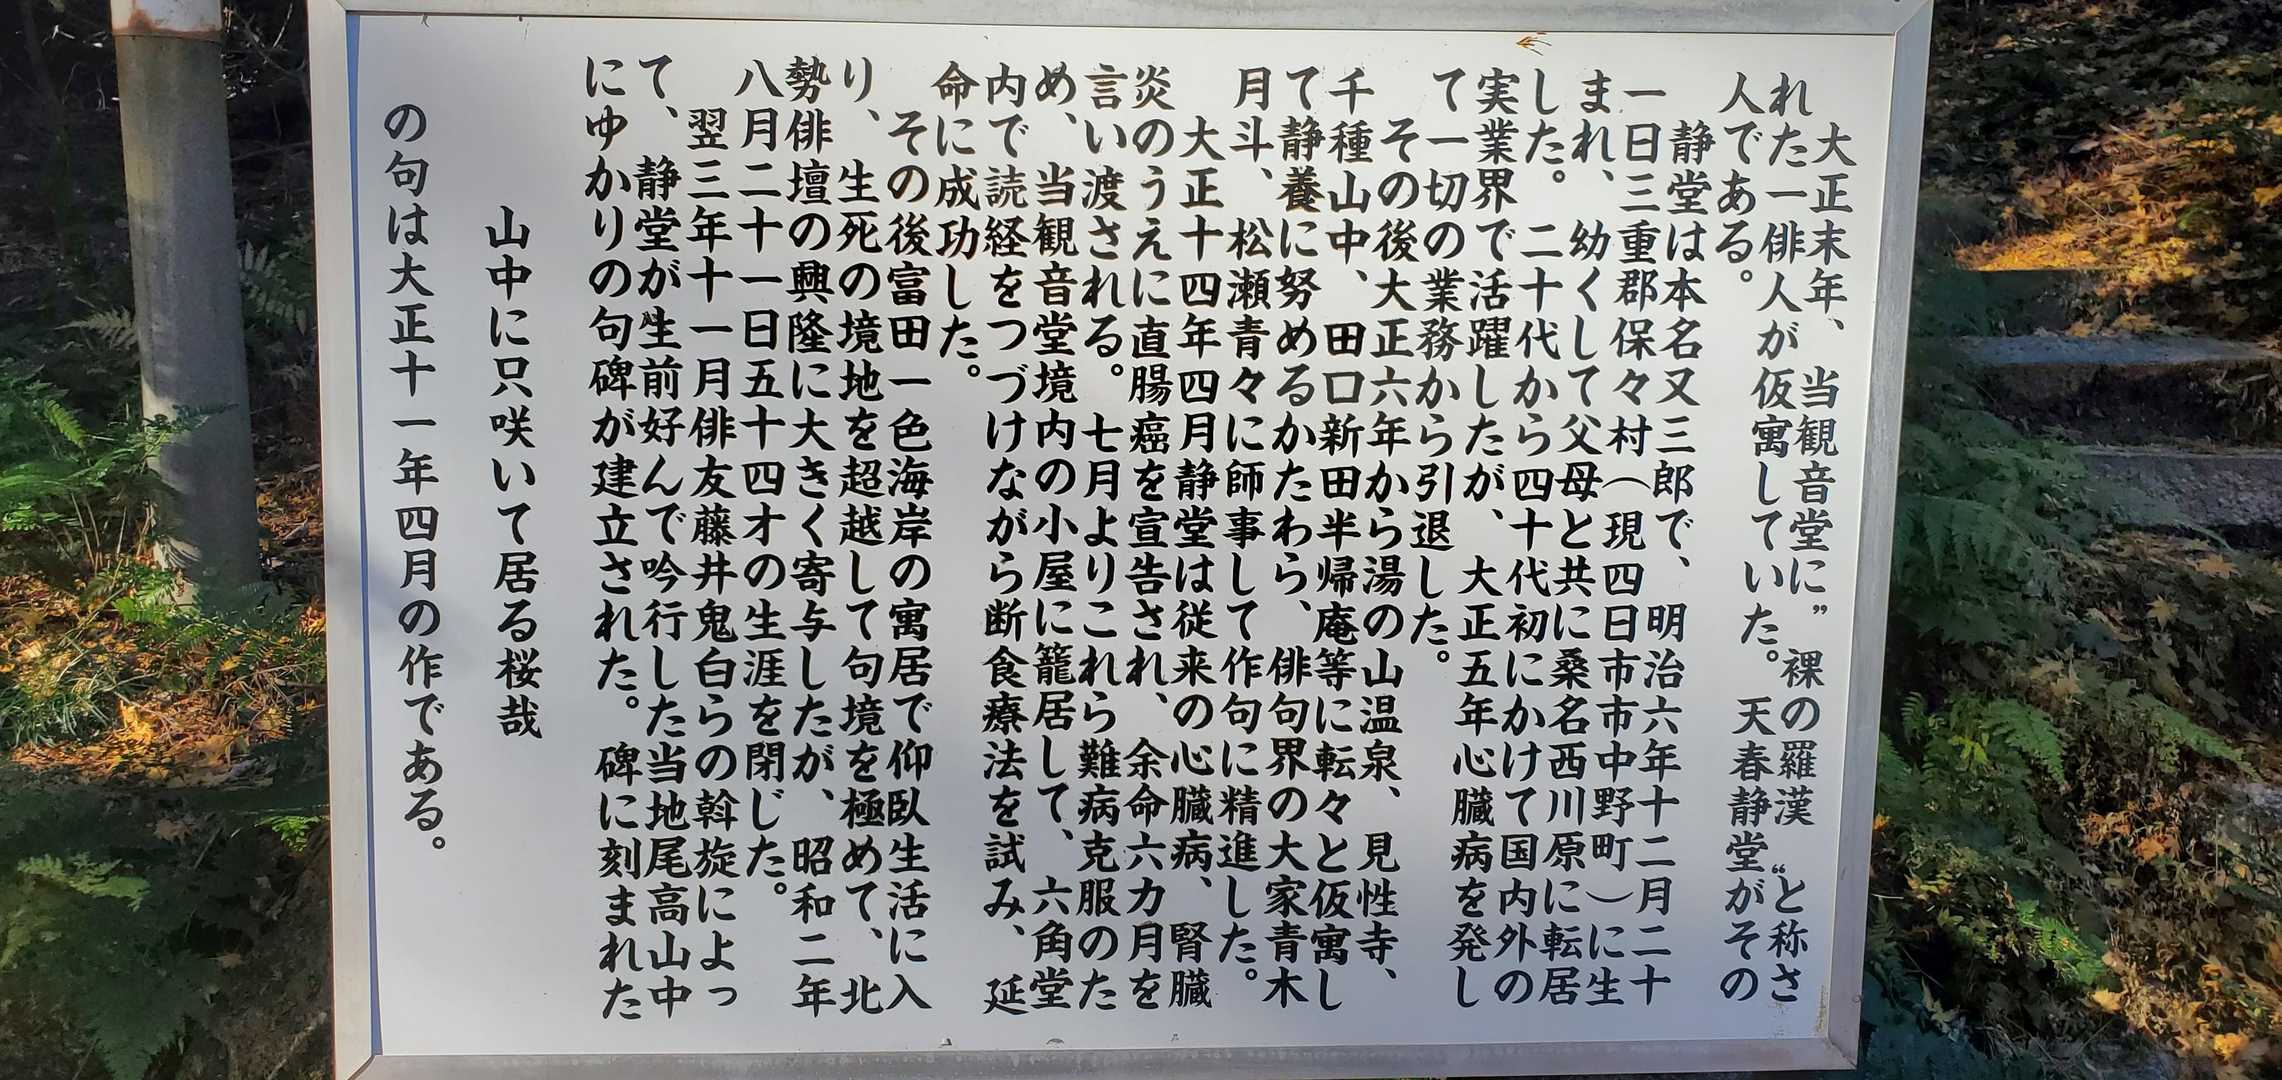 大正末年、当観音堂に”裸の羅漢〟と称さ
れた一俳人が仮寓していた。天春静堂がその
人である。
静堂は本名又三郎で、明治六年十二月二十
一日三重郡保々村（現四日市市中野町）に生
まれ、幼くして父母と共に桑名西川原に転居
した。二十代から四十代初にかけて国内外の
実業界で活躍したが、大正五年心臓病を発し
て一切の業務から引退した。
その後大正六年から湯の山温泉、見性寺、
千種山中、田口新田半帰庵等に転々と仮寓し
て静養に努めるかたわら、俳句界の大家青木
月斗、松瀬青々に師事して作句に精進した。
大正十四年四月静堂は従来の心臓病、腎臓
炎のうえに直腸癌を宣告され、余命六カ月を
言い渡される。七月よりこれら難病克服のた
め、当観音堂境内の小屋に籠居して、六角堂
内で読経をつづけながら断食療法を試み、延
命に成功した。
その後富田一色海岸の寓居で仰臥生活に入
り、生死の境地を超越して句境を極めて、北
勢俳壇の興隆に大きく寄与したが、昭和二年
八月二十一日五十四才の生涯を閉じた。
翌三年十一月俳友藤井鬼白らの斡旋によっ
て、静堂が生前好んで吟行した当地尾高山中
にゆかりの句碑が建立された。碑に刻まれた
山中に只咲いて居る桜哉
の句は大正十一年四月の作である。